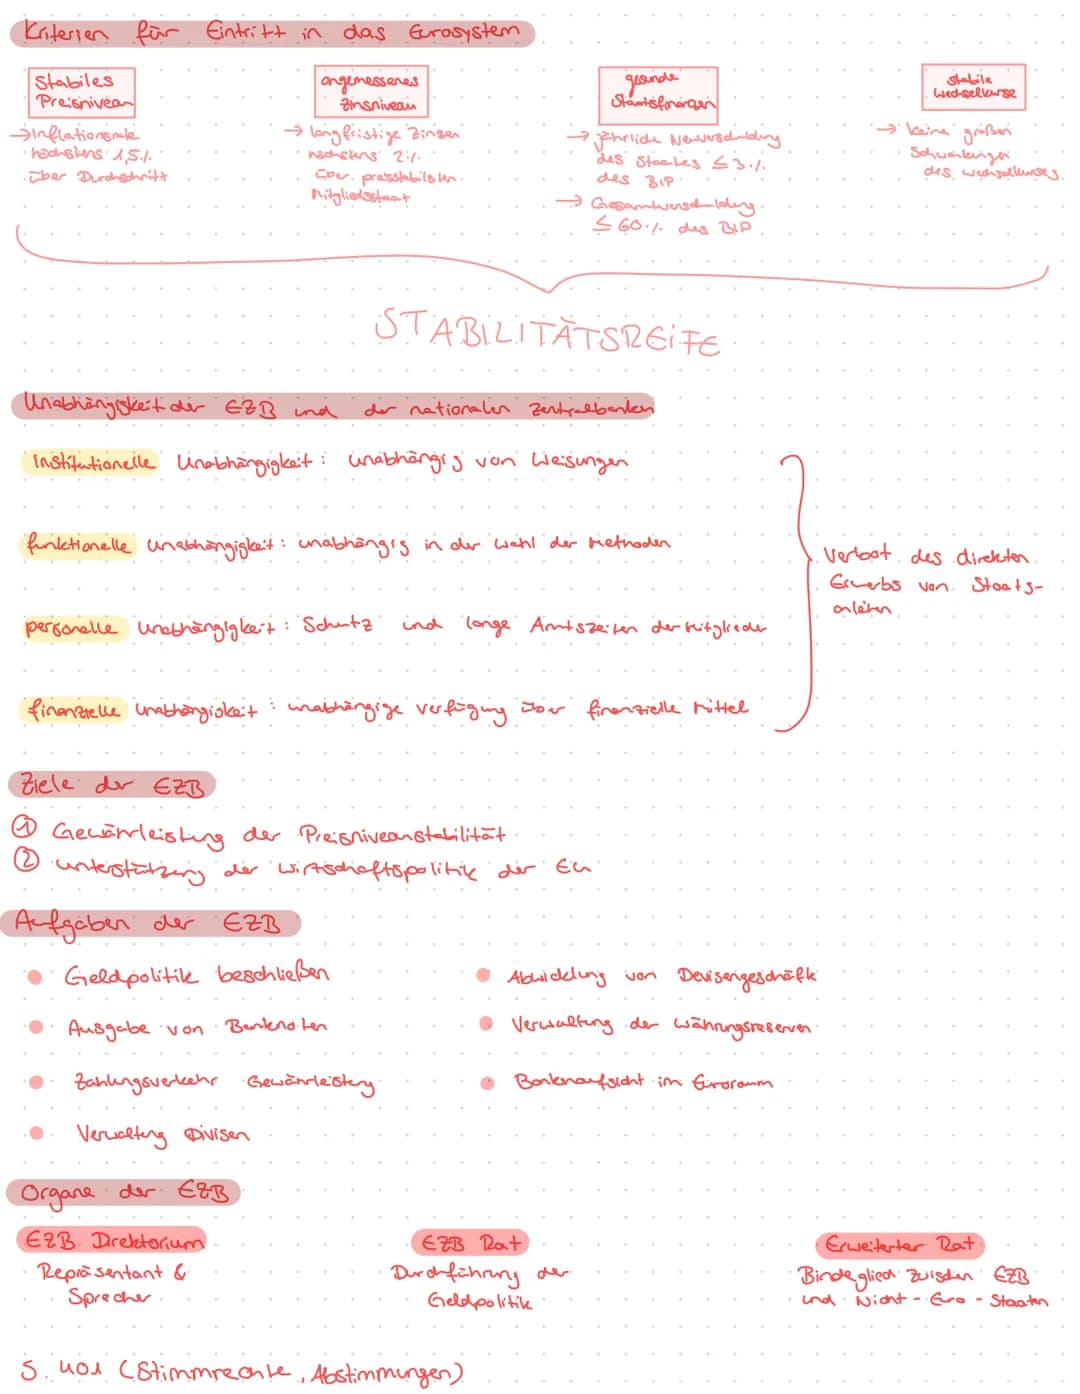 Kriterien für Eintritt in das Eurosystem
Stabiles
Preisniveau
→ Inflationsrate
höchstens 1,5%
über Durchschnitt
angemessenes
Zinsniveau
→ langfristige Zinsen
höchstens 2%
über preisstabilsten
Mitgliedsstaat
gesunde
Staatsfinanzen
→ jährliche Neuverschuldung
des Staates ≤ 3%
des BIP
→ Gesamtverschuldung
≤ 60% des BIP
stabile
Wechselkurse
→ keine großen
Schwankungen
des Wechselkurses
STABILITÄTSREIFE
Unabhängigkeit der EZB und der nationalen Zentralbanken
institutionelle Unabhängigkeit: unabhängig von Weisungen
funktionelle Unabhängigkeit: unabhängig in der Wahl der Methoden
personelle Unabhängigkeit: Schutz und lange Amtszeiten der Mitglieder
finanzielle Unabhängigkeit: unabhängige Verfügung über finanzielle Mittel
Verbot des direkten
Erwerbs von Staats-
anleihen
Ziele der EZB
① Gewährleistung der Preisniveaustabilität
② Unterstützung der Wirtschaftspolitik der EU
Aufgaben der EZB
• Geldpolitik beschließen
• Ausgabe von Banknoten
• Zahlungsverkehr Gewährleistung
• Verwaltung Divisen
• Abwicklung von Devisengeschäfte
• Verwaltung der Währungsreserven
• Bankenaufsicht im Euroraum
Organe der EZB
EZB Direktorium
Repräsentant &
Sprecher
EZB Rat
Durchführung der
Geldpolitik
Erweiterter Rat
Bindeglied zwischen EZB
und Nicht-Euro-Staaten
S. 401 (Stimmrechte, Abstimmungen)